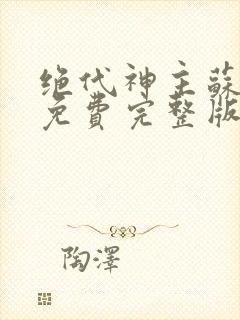 绝代神主蘇
免費完整版
陶澤